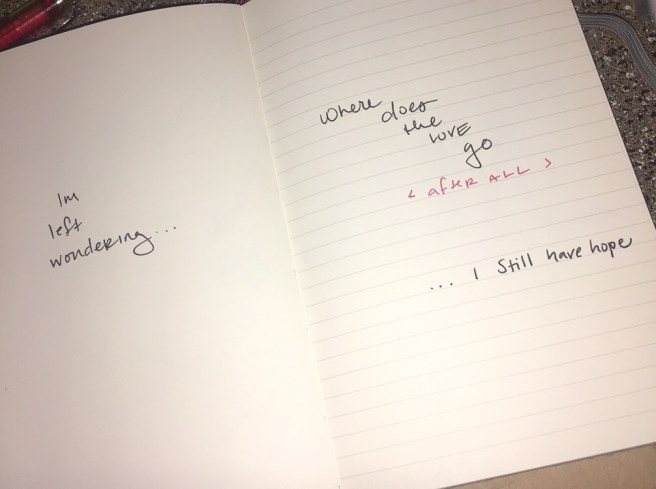 Im
left
wondering...
where does
the
LOVE
go
< after ALL >
... I still have hope